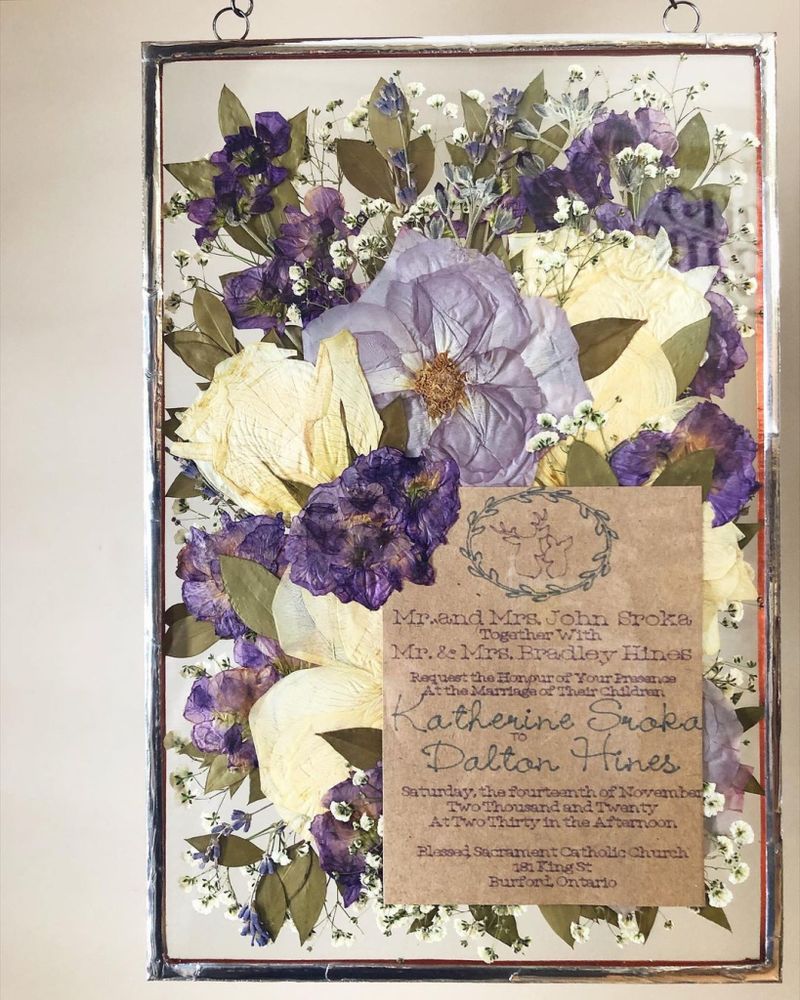 Mr. and Mrs. John Sroka
Together With
Mr. & Mrs. Bradley Hines
Request the Honour of Your Presence
At the Marriage of Their Children
Katherine Sroka
TO
Dalton Hines
Saturday, the fourteenth of November
Two Thousand and Twenty
At Two Thirty in the Afternoon
Blessed Sacrament Catholic Church
181 King St
Burford, Ontario